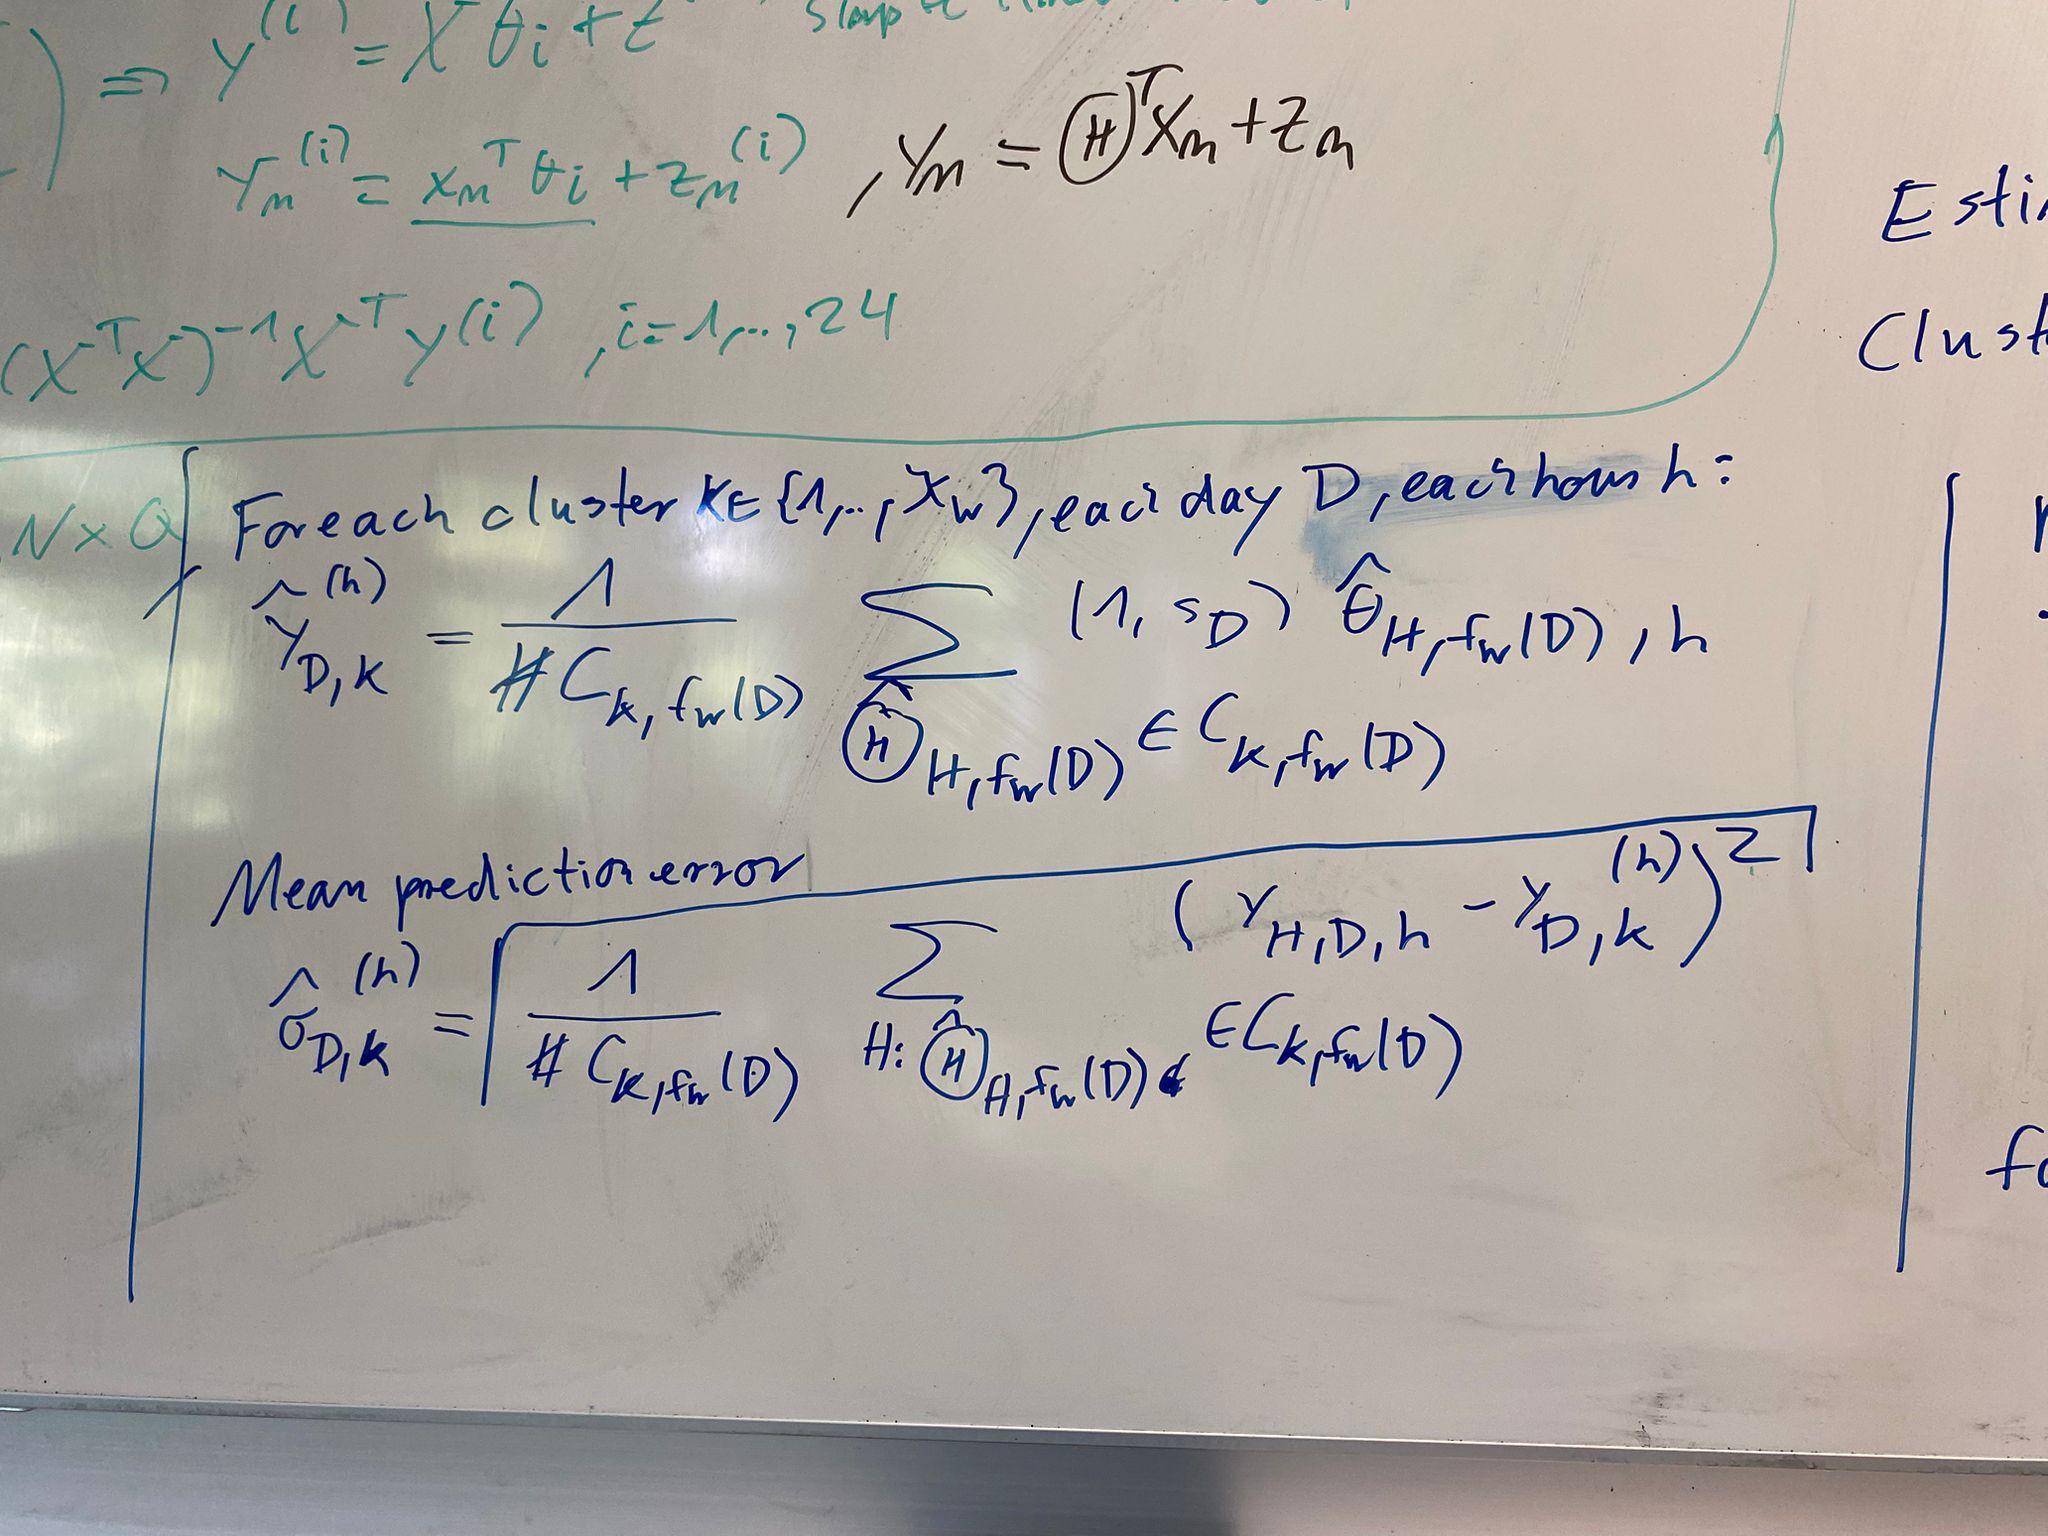 ⇒ Y^(i) = X θ_i + z
Y_n^(i) = x_n^T θ_i + z_n^(i) , Y_n = Ⓗ^T x_n + z_n
(X^T X)^-1 X^T Y^(i) , i=1,..,24
Esti
Clust
N×Q
For each cluster k∈{1,..,χ_w}, each day D, each hour h:
Ŷ_{D,k}^(h) = 1/(# C_{k,f_w(D)}) Σ_{Θ̂_{H,f_w(D)} ∈ C_{k,f_w(D)}} (1, s_D) θ̂_{H,f_w(D),h}
Mean prediction error
σ̂_{D,k}^(h) = √( 1/(# C_{k,f_w(D)}) Σ_{H: Θ̂_{H,f_w(D)} ∈ C_{k,f_w(D)}} (Y_{H,D,h} - Y_{D,k}^(h))^2 )
fo